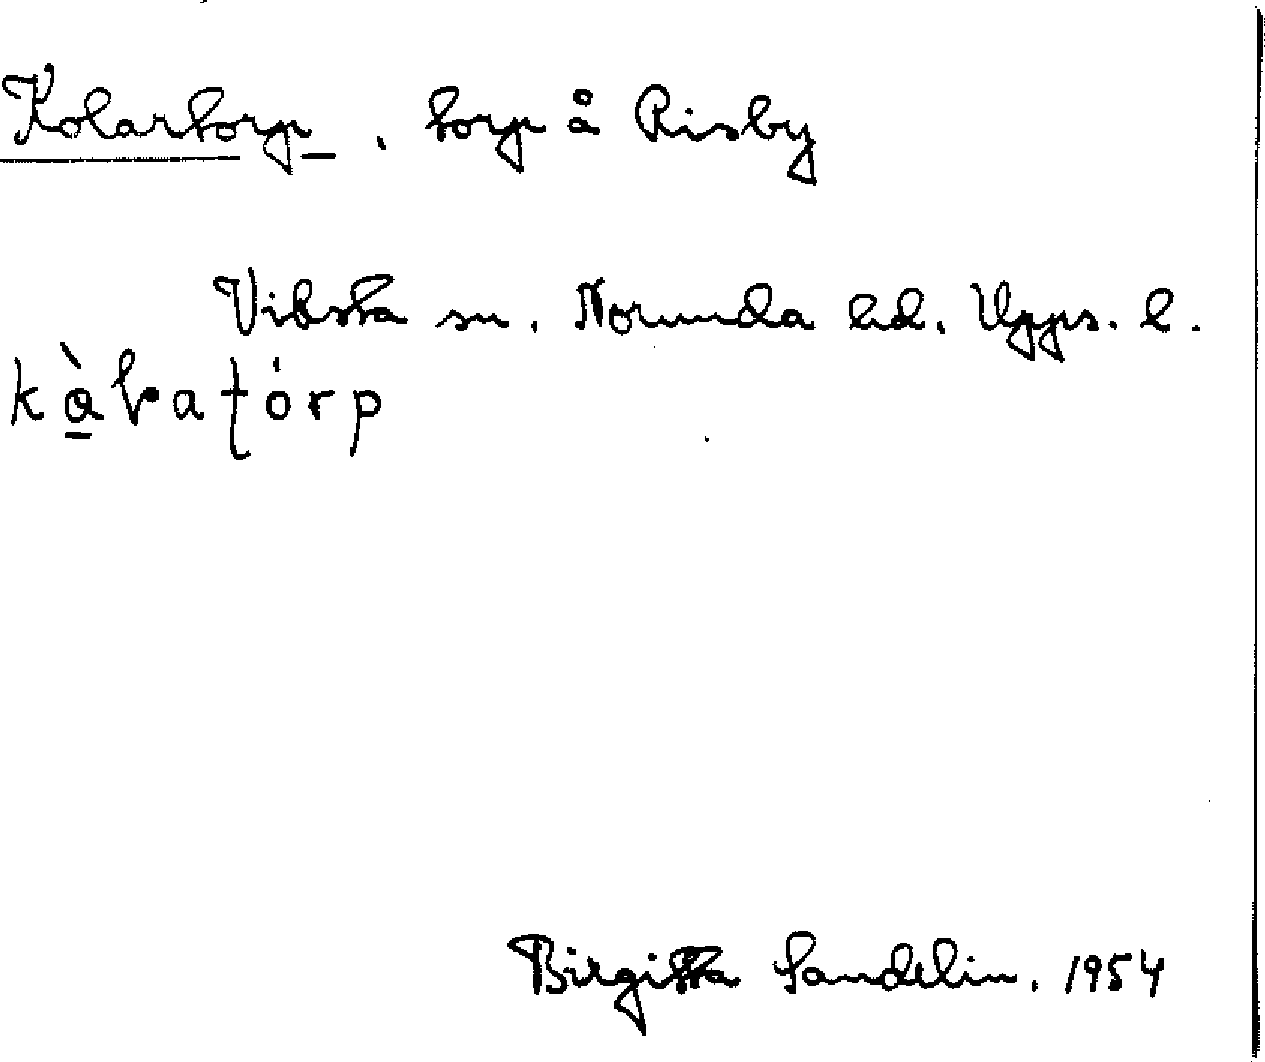 Kolartorp, torp å Risby
Viksta sn. Norunda hd. Upps. l.
Birgitta Sandelin. 1954